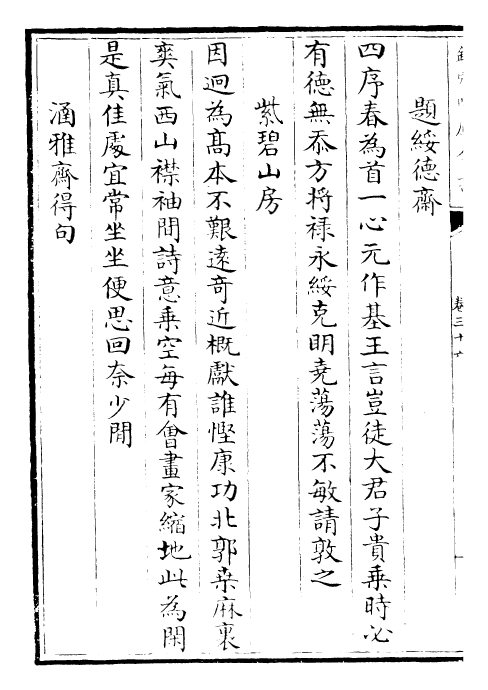 題綏德齋
四序春為首一心元作基王言豈徒大君子貴乗時必
有德無忝方将禄永綏克明堯蕩蕩不敏請敦之
紫碧山房
因迥為髙本不艱逺竒近概獻誰慳康功北郭桑麻裏
爽氣西山襟袖間詩意乗空每有會畫家縮地此為閑
是真佳處宜常坐坐便思回奈少閒
涵雅齋得句
卷三十